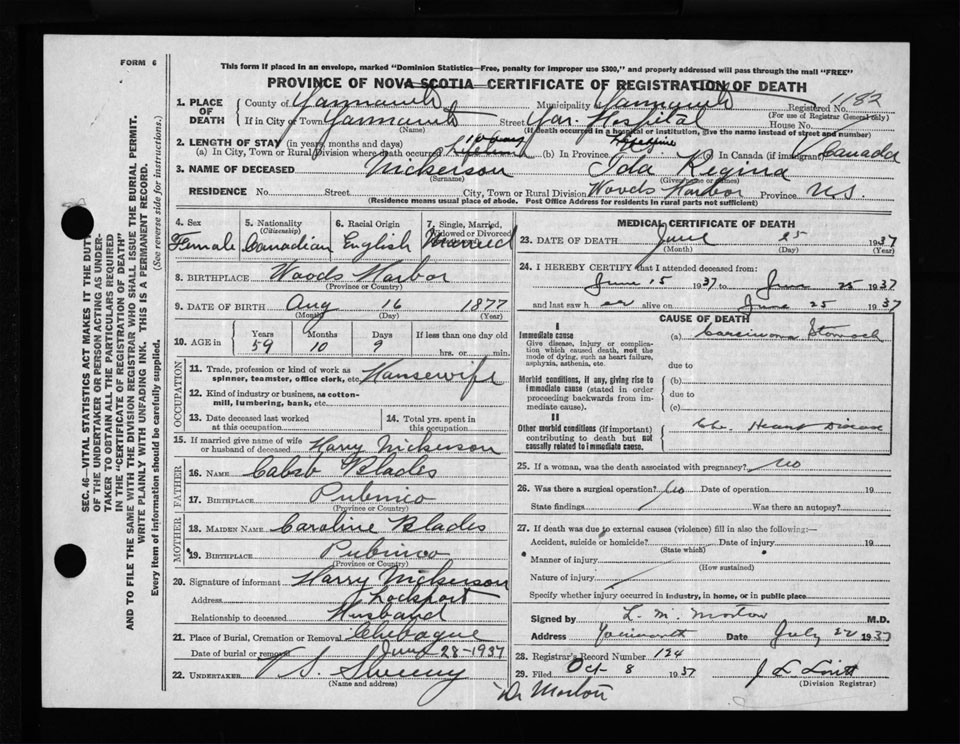 FORM 6
This form if placed in an envelope, marked "Dominion Statistics—Free, penalty for improper use $300," and properly addressed will pass through the mail "FREE"
PROVINCE OF NOVA SCOTIA—CERTIFICATE OF REGISTRATION OF DEATH
1. PLACE OF DEATH
County of Yarmouth Municipality of Yarmouth Registered No. 1182
(For use of Registrar General only)
If in City or Town Yarmouth Street Yar. Hospital House No.
(Name) (If death occurred in a hospital or institution, give name instead of street and number)
2. LENGTH OF STAY (in years, months and days)
(a) In City, Town or Rural Division where death occurred 10 days (b) In Province Lifetime (c) In Canada (if immigrant) Canada
3. NAME OF DECEASED Nickerson Ida Regina
(Surname) (Given names or names)
RESIDENCE No. Street City, Town or Rural Division Woods Harbor Province N.S.
(Residence means usual place of abode. Post Office Address for residents in rural parts not sufficient)
4. Sex Female
5. Nationality (Citizenship) Canadian
6. Racial Origin English
7. Single, Married, Widowed or Divorced Married
8. BIRTHPLACE Woods Harbor
(Province or Country)
9. DATE OF BIRTH Aug 16 1877
(Month) (Day) (Year)
10. AGE in Years 59 Months 10 Days 9 If less than one day old hrs. or min.
OCCUPATION
11. Trade, profession or kind of work as spinner, teamster, office clerk, etc. Housewife
12. Kind of industry or business, as cotton-mill, lumbering, bank, etc.
13. Date deceased last worked at this occupation
14. Total yrs. spent in this occupation
15. If married give name of wife or husband of deceased Harry Nickerson
FATHER
16. NAME Blades
17. BIRTHPLACE Pubnico
(Province or Country)
MOTHER
18. MAIDEN NAME Caroline Blades
19. BIRTHPLACE Pubnico
(Province or Country)
20. Signature of informant Harry Nickerson
Address Lockport
Relationship to deceased Husband
21. Place of Burial, Cremation or Removal
Date of burial or removal June 28-1937
22. UNDERTAKER V S Sweeny
(Name and address)
MEDICAL CERTIFICATE OF DEATH
23. DATE OF DEATH June 25 1937
(Month) (Day) (Year)
24. I HEREBY CERTIFY that I attended deceased from:
June 15 1937 to June 25 1937
and last saw h er alive on June 25 1937
CAUSE OF DEATH
I
Immediate cause (a) Carcinoma Stomach
Give disease, injury or complication which caused death, not the mode of dying, such as heart failure, asphyxia, asthenia, etc.
due to
Morbid conditions, if any, giving rise to immediate cause (stated in order proceeding backwards from immediate cause).
(b)
due to
(c)
II
Other morbid conditions (if important) contributing to death but not causally related to immediate cause.
Chr. Heart Disease
25. If a woman, was the death associated with pregnancy? No
26. Was there a surgical operation? No Date of operation 19
State findings Was there an autopsy?
27. If death was due to external causes (violence) fill in also the following:—
Accident, suicide or homicide? Date of injury 19
(State which)
Manner of injury
(How sustained)
Nature of injury
Specify whether injury occurred in industry, in home, or in public place
Signed by L. M. Morton M.D.
Address Yarmouth Date July 22 1937
28. Registrar's Record Number 124
29. Filed Oct 8 1937
(Division Registrar)
Dr Morton
SEC. 46—VITAL STATISTICS ACT MAKES IT THE DUTY
OF THE UNDERTAKER OR PERSON ACTING AS UNDER-
TAKER TO OBTAIN ALL THE PARTICULARS REQUIRED
IN THE "CERTIFICATE OF REGISTRATION OF DEATH"
AND TO FILE THE SAME WITH THE DIVISION REGISTRAR WHO SHALL ISSUE THE BURIAL PERMIT.
WRITE PLAINLY WITH UNFADING INK. THIS IS A PERMANENT RECORD.
Every item of Information should be carefully supplied. (See reverse side for instructions.)